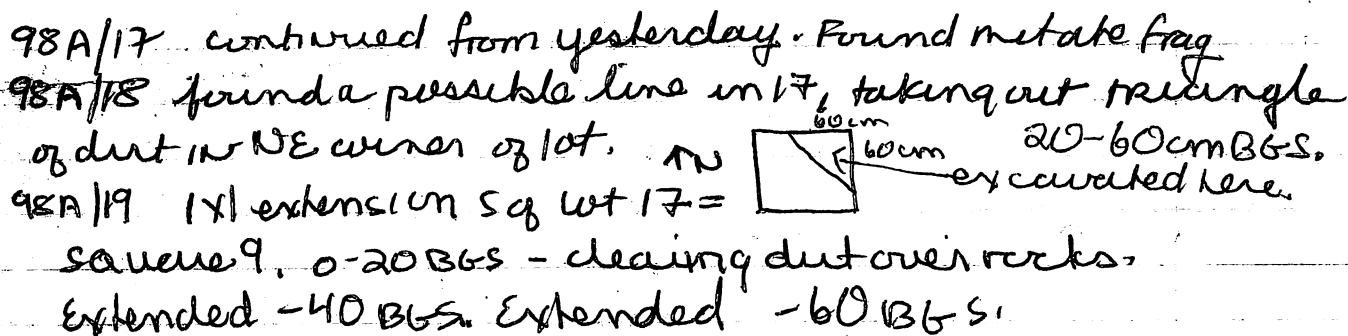 98A/17 continued from yesterday. Found metate frag
98A/18 found a possible line in 17, taking out triangle
of dirt in NE corner of lot. ↑N 60cm 60cm 20-60cm BGS.
excavated here.
98A/19 1x1 extension S of lot 17 =
square 9. 0-20 BGS - clearing dirt over rocks.
Extended -40 BGS. Extended -60 BGS.